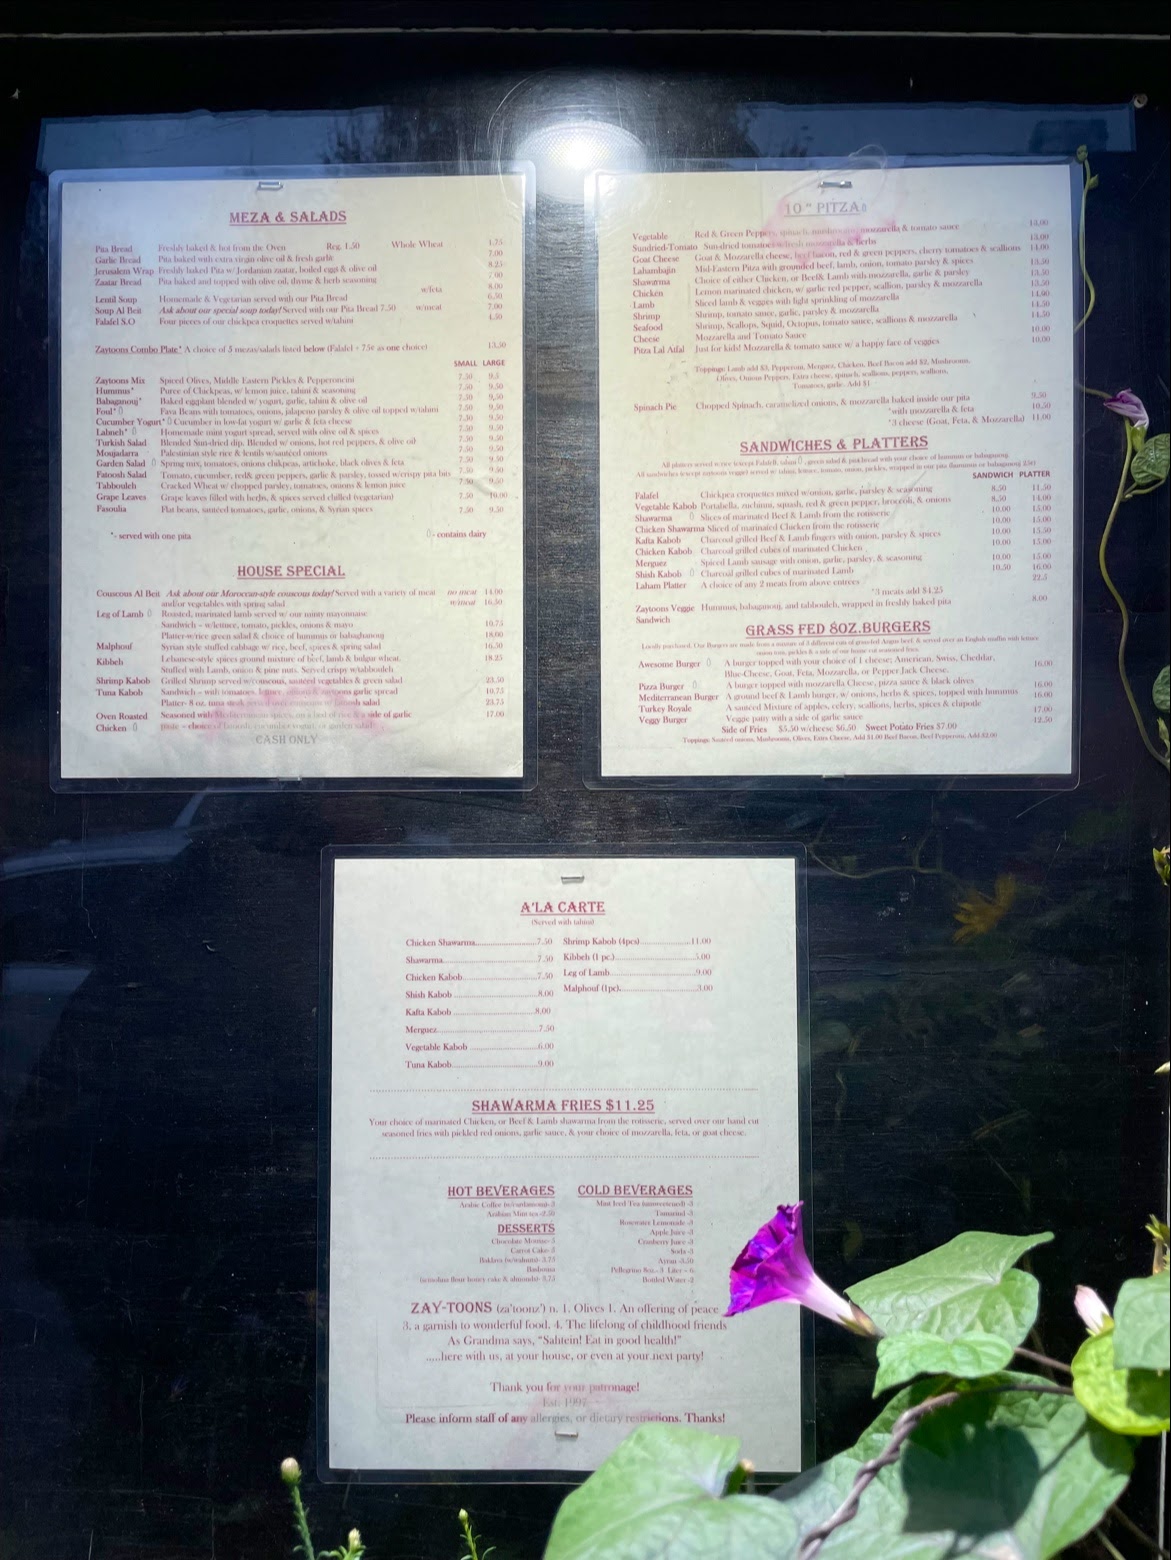 MEZA & SALADS
Pita Bread Freshly baked & hot from the Oven Reg. 1.50 Whole Wheat 1.75
Garlic Bread Pita baked with extra virgin olive oil & fresh garlic 7.00
Jerusalem Wrap Freshly baked Pita w/ Jordanian zaatar, boiled eggs & olive oil 8.25
Zaatar Bread Pita baked and topped with olive oil, thyme & herb seasoning 7.00
w/feta 8.00
Lentil Soup Homemade & Vegetarian served with our Pita Bread 6.50
Soup Al Beit Ask about our special soup today! Served with our Pita Bread 7.50 w/meat 7.90
Falafel S.O Four pieces of our chickpea croquettes served w/tahini 4.50
Zaytoons Combo Plate* A choice of 5 mezas/salads listed below (Falafel + 75¢ as one choice) 13.50
SMALL LARGE
Zaytoons Mix Spiced Olives, Middle Eastern Pickles & Pepperoncini 7.50 9.5
Hummus* Puree of Chickpeas, w/ lemon juice, tahini & seasoning 7.50 9.50
Babaganouj* Baked eggplant blended w/ yogurt, garlic, tahini & olive oil 7.50 9.50
Foul* Fava Beans with tomatoes, onions, jalapeno parsley & olive oil topped w/tahini 7.50 9.50
Cucumber Yogurt* Cucumber in low-fat yogurt w/ garlic & feta cheese 7.50 9.50
Labneh* Homemade mint yogurt spread, served with olive oil & spices 7.50 9.50
Turkish Salad Blended Sun-dried dip. Blended w/ onions, hot red peppers, & olive oil 7.50 9.50
Moujadarra Palestinian style rice & lentils w/sautéed onions 7.50 9.50
Garden Salad Spring mix, tomatoes, onions chikpeas, artichoke, black olives & feta 7.50 9.50
Fatoosh Salad Tomato, cucumber, red& green peppers, garlic & parsley, tossed w/crispy pita bits 7.50 9.50
Tabbouleh Cracked Wheat w/ chopped parsley, tomatoes, onions & lemon juice 7.50 9.50
Grape Leaves Grape leaves filled with herbs, & spices served chilled (vegetarian) 7.50 10.00
Fasoulia Flat beans, sautéed tomatoes, garlic, onions, & Syrian spices 7.50 9.50
*- served with one pita - contains dairy
HOUSE SPECIAL
Couscous Al Beit Ask about our Moroccan-style couscous today! Served with a variety of meat no meat 14.00
and/or vegetables with spring salad w/meat 16.50
Leg of Lamb Roasted, marinated lamb served w/ our minty mayonnaise
Sandwich – w/lettuce, tomato, pickles, onions & mayo 10.75
Platter-w/rice green salad & choice of hummus or babaghanouj 18.00
Malphouf Syrian style stuffed cabbage w/ rice, beef, spices & spring salad 16.50
Kibbeh Lebanese-style spices ground mixture of beef, lamb & bulgur wheat. 18.25
Stuffed with Lamb, onion & pine nuts. Served crispy w/tabbouleh
Shrimp Kabob Grilled Shrimp served w/couscous, sautéed vegetables & green salad 23.50
Tuna Kabob Sandwich – with tomatoes, lettuce, onions & zaytoons garlic spread 10.75
Platter- 8 oz. tuna steak served over couscous w/ fatoosh salad 23.75
Oven Roasted Seasoned with Mediterranean spices, on a bed of rice & a side of garlic 17.00
Chicken paste – choice of fatoosh, cucumber yogurt, or garden salad
CASH ONLY
10" PITZA
Vegetable Red & Green Peppers, spinach, mushrooms, mozzarella & tomato sauce 13.00
Sundried-Tomato Sun-dried tomatoes w/fresh mozzarella & herbs 13.00
Goat Cheese Goat & Mozzarella cheese, beef bacon, red & green peppers, cherry tomatoes & scallions 14.00
Lahambajin Mid-Eastern Pitza with grounded beef, lamb, onion, tomato parsley & spices 13.50
Shawarma Choice of either Chicken, or Beef& Lamb with mozzarella, garlic & parsley 13.50
Chicken Lemon marinated chicken, w/ garlic red pepper, scallion, parsley & mozzarella 13.50
Lamb Sliced lamb & veggies with light sprinkling of mozzarella 14.00
Shrimp Shrimp, tomato sauce, garlic, parsley & mozzarella 14.50
Seafood Shrimp, Scallops, Squid, Octopus, tomato sauce, scallions & mozzarella 14.50
Cheese Mozzarella and Tomato Sauce 10.00
Pitza Lal Atfal Just for kids! Mozzarella & tomato sauce w/ a happy face of veggies 10.00
Toppings: Lamb add $3, Pepperoni, Merguez, Chicken, Beef Bacon add $2, Mushrooms,
Olives, Onions Peppers, Extra cheese, spinach, scallions, peppers, scallions,
Tomatoes, garlic. Add $1
Spinach Pie Chopped Spinach, caramelized onions, & mozzarella baked inside our pita 9.50
*with mozzarella & feta 10.50
*3 cheese (Goat, Feta, & Mozzarella) 11.00
SANDWICHES & PLATTERS
SANDWICH PLATTER
Falafel Chickpea croquettes mixed w/onion, garlic, parsley & seasoning 8.50 11.50
Vegetable Kabob Portabella, zucchini, squash, red & green pepper, broccoli, & onions 8.50 14.00
Shawarma Slices of marinated Beef & Lamb from the rotisserie 10.00 15.00
Chicken Shawarma Sliced of marinated Chicken from the rotisserie 10.00 15.00
Kafta Kabob Charcoal grilled Beef & Lamb fingers with onion, parsley & spices 10.00 15.50
Chicken Kabob Charcoal grilled cubes of marinated Chicken 10.00 15.00
Merguez Spiced Lamb sausage with onion, garlic, parsley, & seasoning 10.00 15.00
Shish Kabob Charcoal grilled cubes of marinated Lamb 10.50 16.00
Laham Platter A choice of any 2 meats from above entrees 22.5
*3 meats add $4.25
Zaytoons Veggie Hummus, babaganouj, and tabbouleh, wrapped in freshly baked pita 8.00
Sandwich
GRASS FED 8OZ.BURGERS
Locally purchased. Our Burgers are made from a mixture of 3 different cuts of grass-fed Angus beef, & served over an English muffin with lettuce
onion tom, pickles & a side of our house cut seasoned fries.
Awesome Burger A burger topped with your choice of 1 cheese; American, Swiss, Cheddar, 16.00
Blue-Cheese, Goat, Feta, Mozzarella, or Pepper Jack Cheese.
Pizza Burger A burger topped with mozzarella Cheese, pizza sauce & black olives 16.00
Mediterranean Burger A ground beef & Lamb burger, w/ onions, herbs & spices, topped with hummus 16.00
Turkey Royale A sautéed Mixture of apples, celery, scallions, herbs, spices & chipotle 17.00
Veggy Burger Veggie patty with a side of garlic sauce 12.50
Side of Fries $5.50 w/cheese $6.50 Sweet Potato Fries $7.00
Toppings: Sauteed onions, Mushrooms, Olives, Extra Cheese, Add $1.00 Beef Bacon, Beef Pepperoni, Add $2.00
A'LA CARTE
(Served with tahini)
Chicken Shawarma 7.50 Shrimp Kabob (4pcs) 11.00
Shawarma 7.50 Kibbeh (1 pc.) 5.00
Chicken Kabob 7.50 Leg of Lamb 9.00
Shish Kabob 8.00 Malphouf (1pc) 3.00
Kafta Kabob 8.00
Merguez 7.50
Vegetable Kabob 6.00
Tuna Kabob 9.00
SHAWARMA FRIES $11.25
Your choice of marinated Chicken, or Beef & Lamb shawarma from the rotisserie, served over our hand cut
seasoned fries with pickled red onions, garlic sauce, & your choice of mozzarella, feta, or goat cheese.
HOT BEVERAGES
Arabic Coffee (w/cardamom)-3
Arabian Mint tea -2.50
DESSERTS
Chocolate Mousse- 5
Carrot Cake- 5
Baklava (w/walnuts)- 3.75
Basbousa
(semolina flour honey cake & almonds)- 3.75
COLD BEVERAGES
Mint Iced Tea (unsweetened) -3
Tamarind -3
Rosewater Lemonade -3
Apple Juice -3
Cranberry Juice -3
Soda -3
Ayran -3.50
Pellegrino 8oz.- 3 Liter – 6
Bottled Water -2
ZAY-TOONS (za'toonz') n. 1. Olives 1. An offering of peace
3. a garnish to wonderful food. 4. The lifelong of childhood friends
As Grandma says, “Sahtein! Eat in good health!”
.....here with us, at your house, or even at your next party!
Thank you for your patronage!
Est. 1997
Please inform staff of any allergies, or dietary restrictions. Thanks!